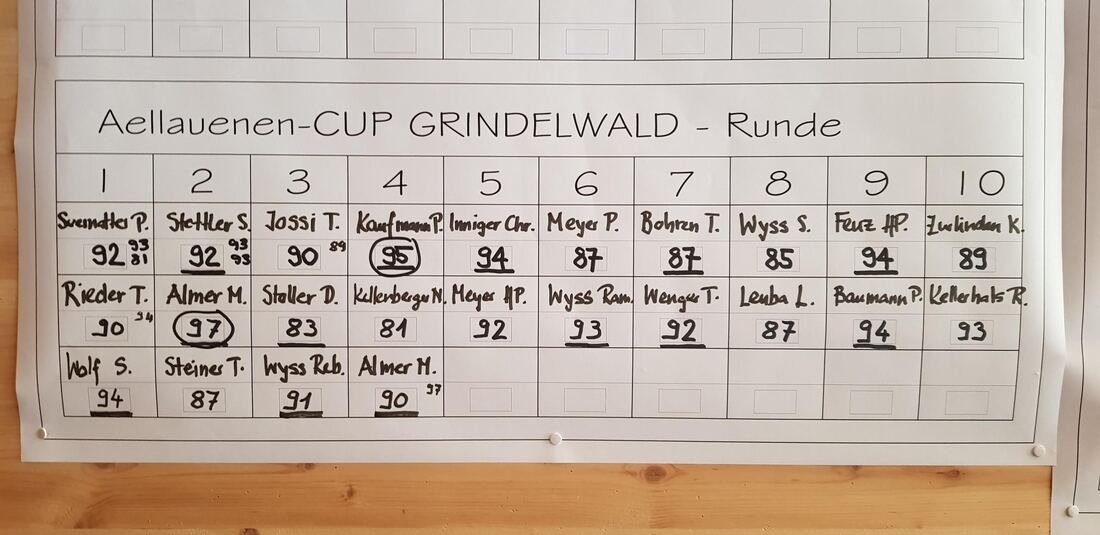 Aellauenen-CUP GRINDELWALD - Runde
1 2 3 4 5 6 7 8 9 10
P. Stettler S. Jossi T. Kaufmann P. Inniger Chr. Meyer P. Bohren T. Wyss S. Feuz HP. Zurlinden K.
92 93 81 92 93 93 90 89 95 94 87 87 85 94 89
Rieder T. Almer M. Stoller D. Kellenberger N. Meyer HP. Wyss Ram. Wenger T. Leuba L. Baumann P. Kellerhals R.
90 94 97 83 81 92 93 92 87 94 93
Wolf S. Steiner T. Wyss Reb. Almer M.
94 87 91 90 97